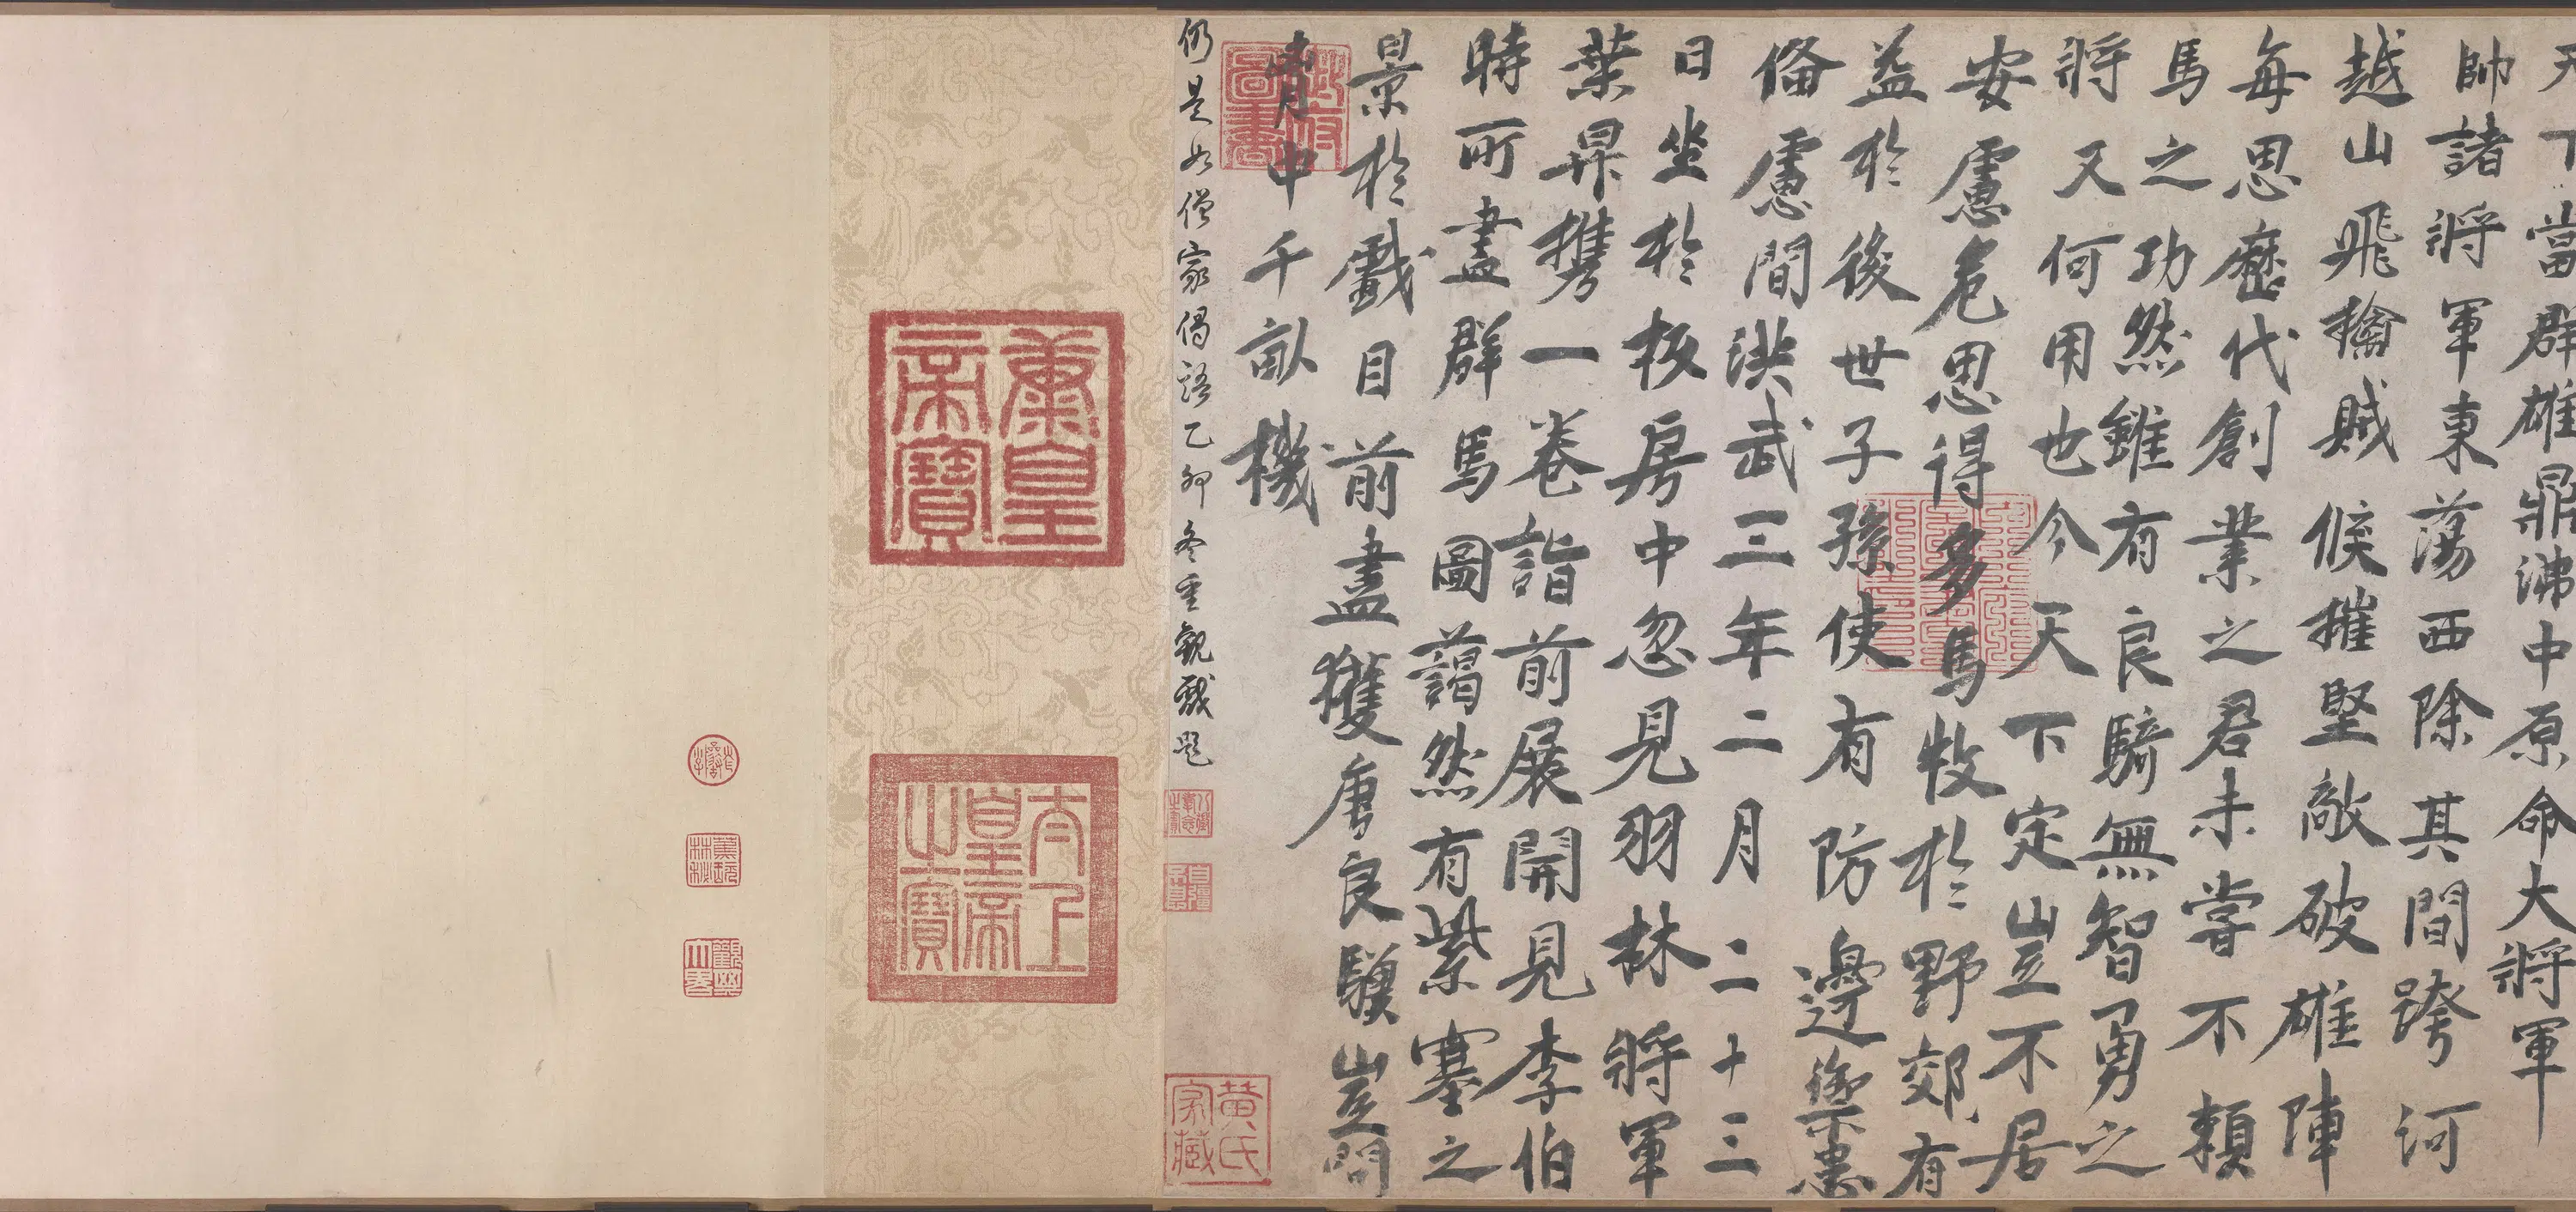 天下當群雄鼎沸中原命大將軍
帥諸將軍東蕩西除其間跨河
越山飛擒賊候摧堅敵破雄陣
每思歷代創業之君未嘗不賴
馬之功然雖有良騎無智勇之
將又何用也今天下定豈不居
安慮危思得多馬牧於野郊有
益於後世子孫使有防邊禦患
備慮間洪武三年二月二十三
日坐於板房中忽見羽林將軍
葉昇携一卷詣前展開見李伯
時所畫群馬圖藹然有紫塞之
景於戲目前盡獲唐良驥豈問
胷中千畝機
仍是如僧家偈語乙卯冬重觀戲題
御府圖書
八徵耄念之寶
自彊不息
黃氏家藏
太上皇帝之寶
觀其大略